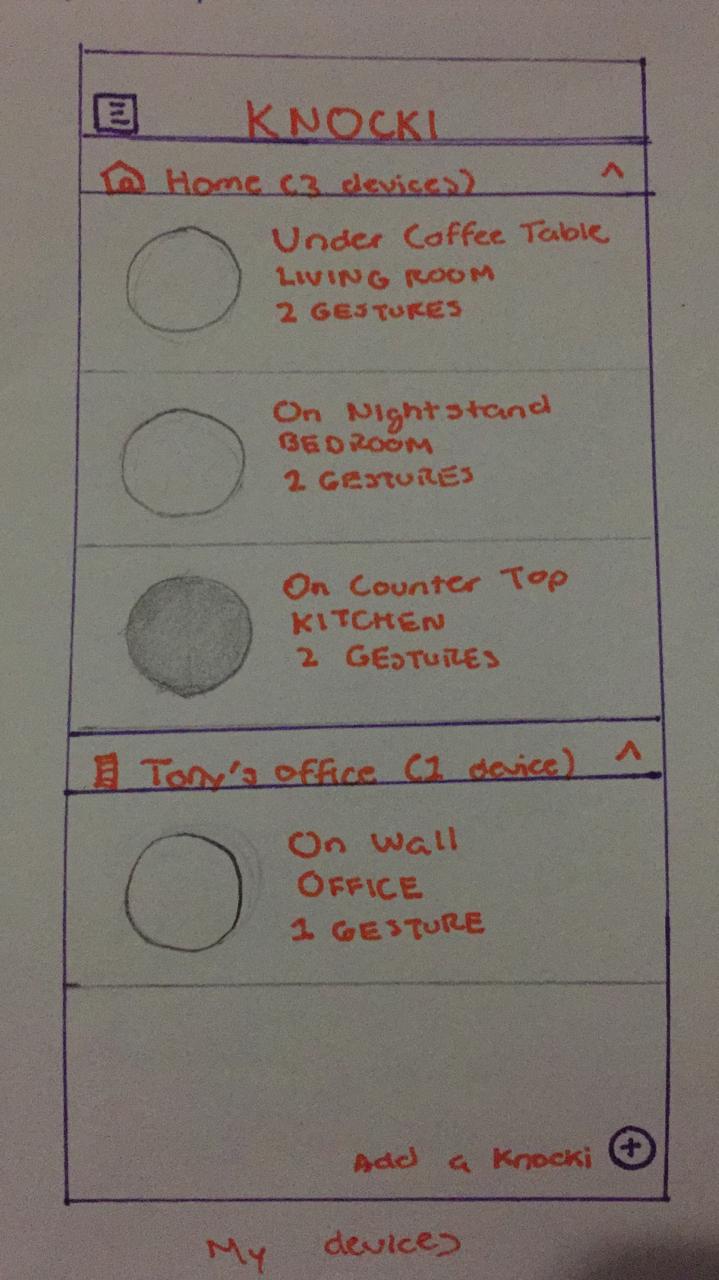 KNOCKI
Home (3 devices)
^
Under Coffee Table
LIVING ROOM
2 GESTURES
On Nightstand
BEDROOM
2 GESTURES
On Counter Top
KITCHEN
2 GESTURES
Tony's office (1 device)
^
On Wall
OFFICE
1 GESTURE
Add a Knocki +
My devices